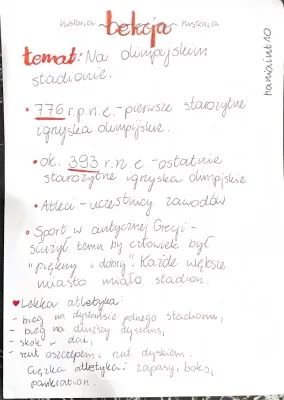 historia lekcja historia
temat: Na olimpijskim
stadionie.
• 776 r.p.n.e. - pierwsze starożytne
igrzyska olimpijskie.
• ok. 393 r.n.e. - ostatnie
starożytne igrzyska olimpijskie
• Atleci - uczestnicy zawodów
• Sport w antycznej Grecji -
służył temu by człowiek był
"piękny i dobry". Każde większe
miasto miało stadion.
♥ Lekka atletyka:
- bieg na dystansie jednego stadionu,
- bieg na dłuższy dystans,
- skok w dal,
- rzut oszczepem, rzut dyskiem.
Ciężka atletyka: zapasy, boks,
pankration.
haniaint10